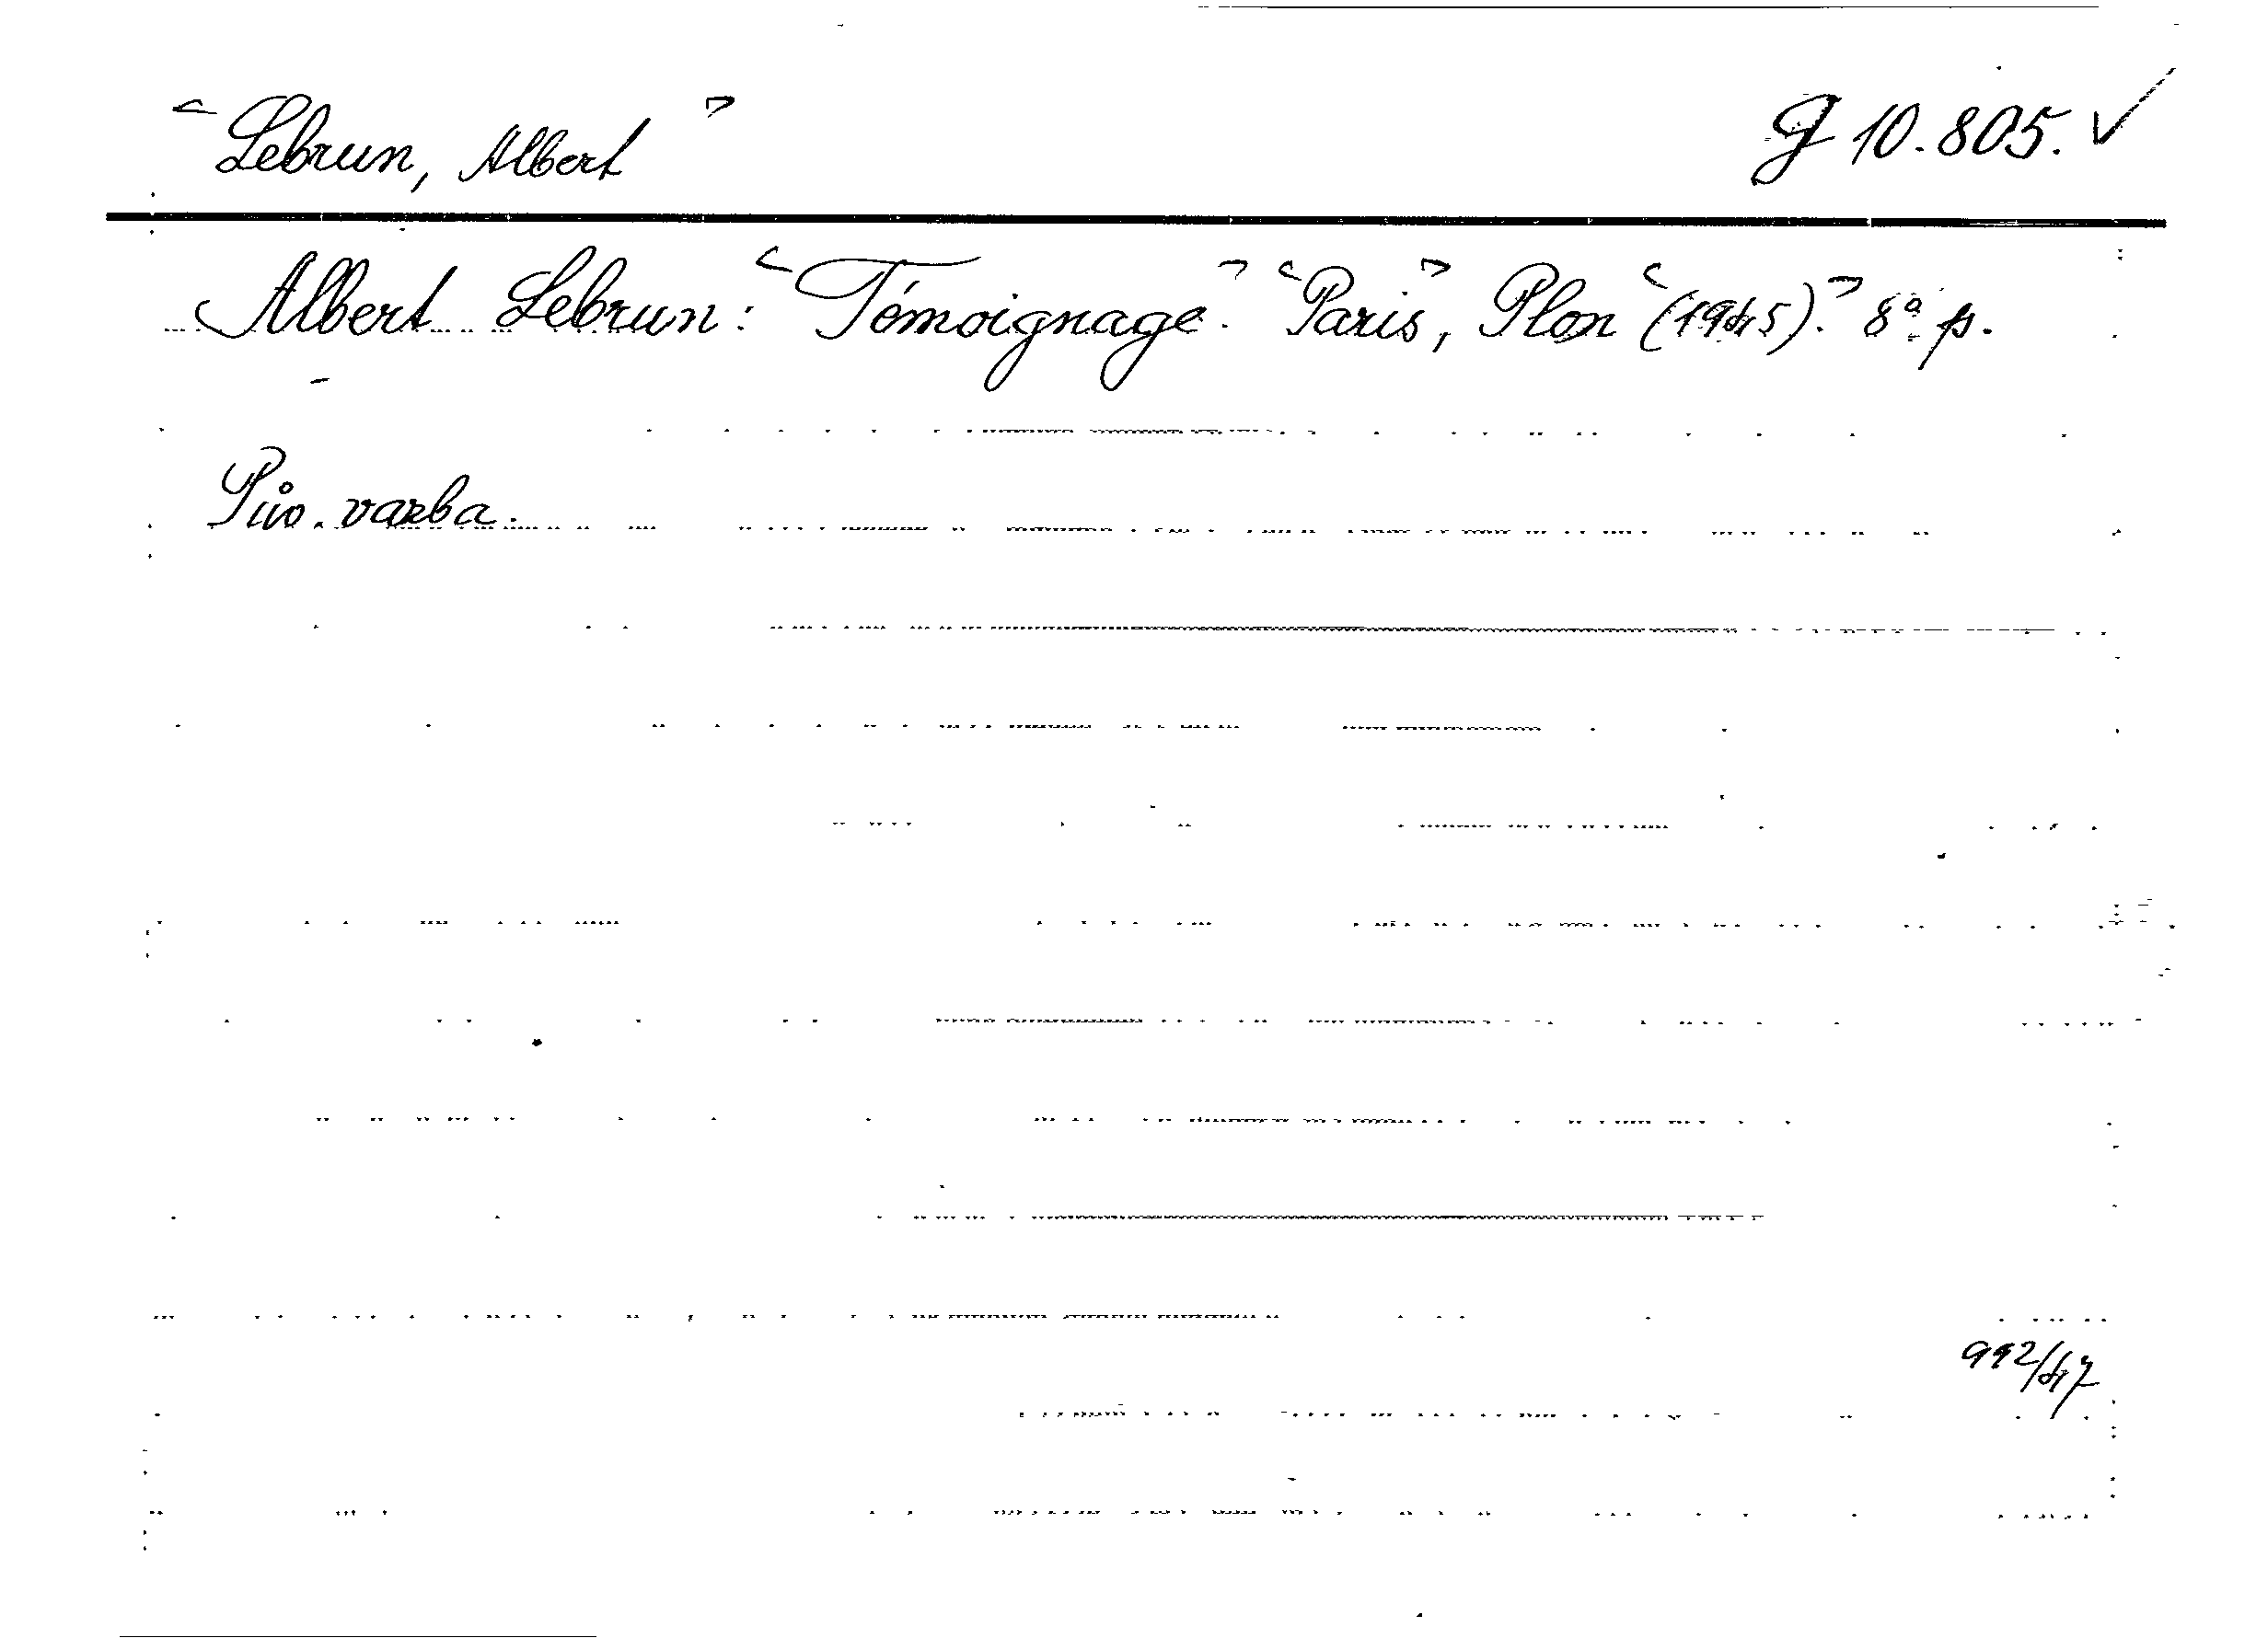 "Lebrun, Albert" G 10.805. ✓
Albert Lebrun: "Témoignage." "Paris", Plon "(1945)." 8° p.
Pův. vazba.
992/47